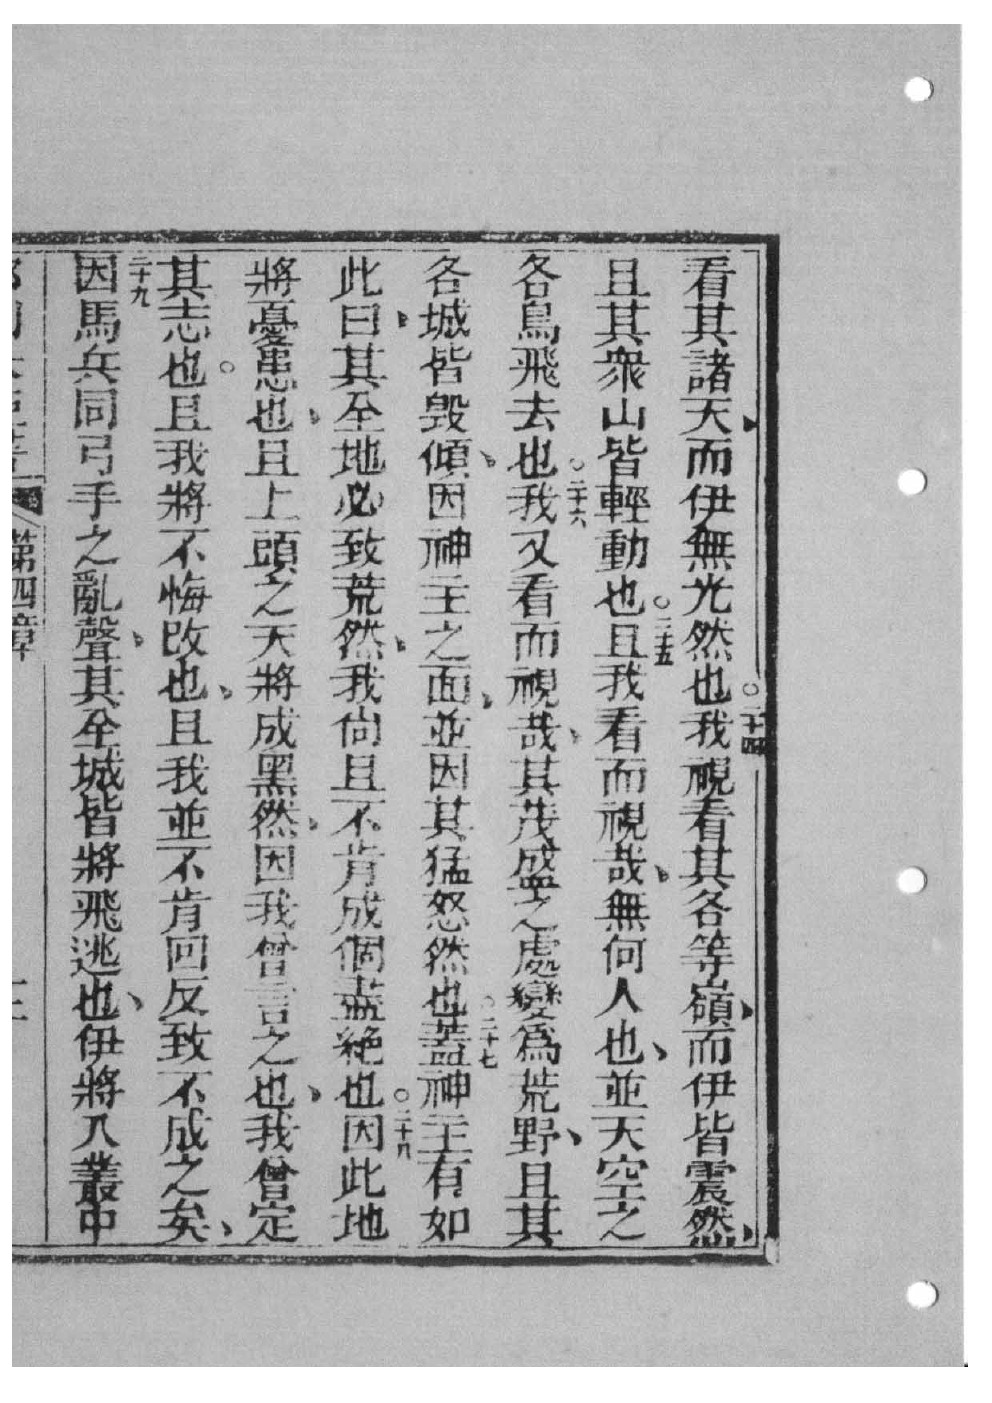 看其諸天、而伊無光然也。二十四我視看其各等嶺、而伊皆震然、
且其衆山皆輕動也。二十五且我看而視哉、無何人也、並天空之
各鳥飛去也。二十六我又看而視哉、其茂盛之處變爲荒野、且其
各城皆毀傾、因神主之面、並因其猛怒然也。二十七蓋神主有如
此曰、其至地必致荒然、我尙且不肯成個盡絕也。二十八因此地
將憂患也、且上頭之天將成黑然、因我曾言之也、我曾定
其志也。且我將不悔改也、且我並不肯回反致不成之矣、
二十九因馬兵同弓手之亂聲、其至城皆將飛逃也、伊將入叢中
第四章